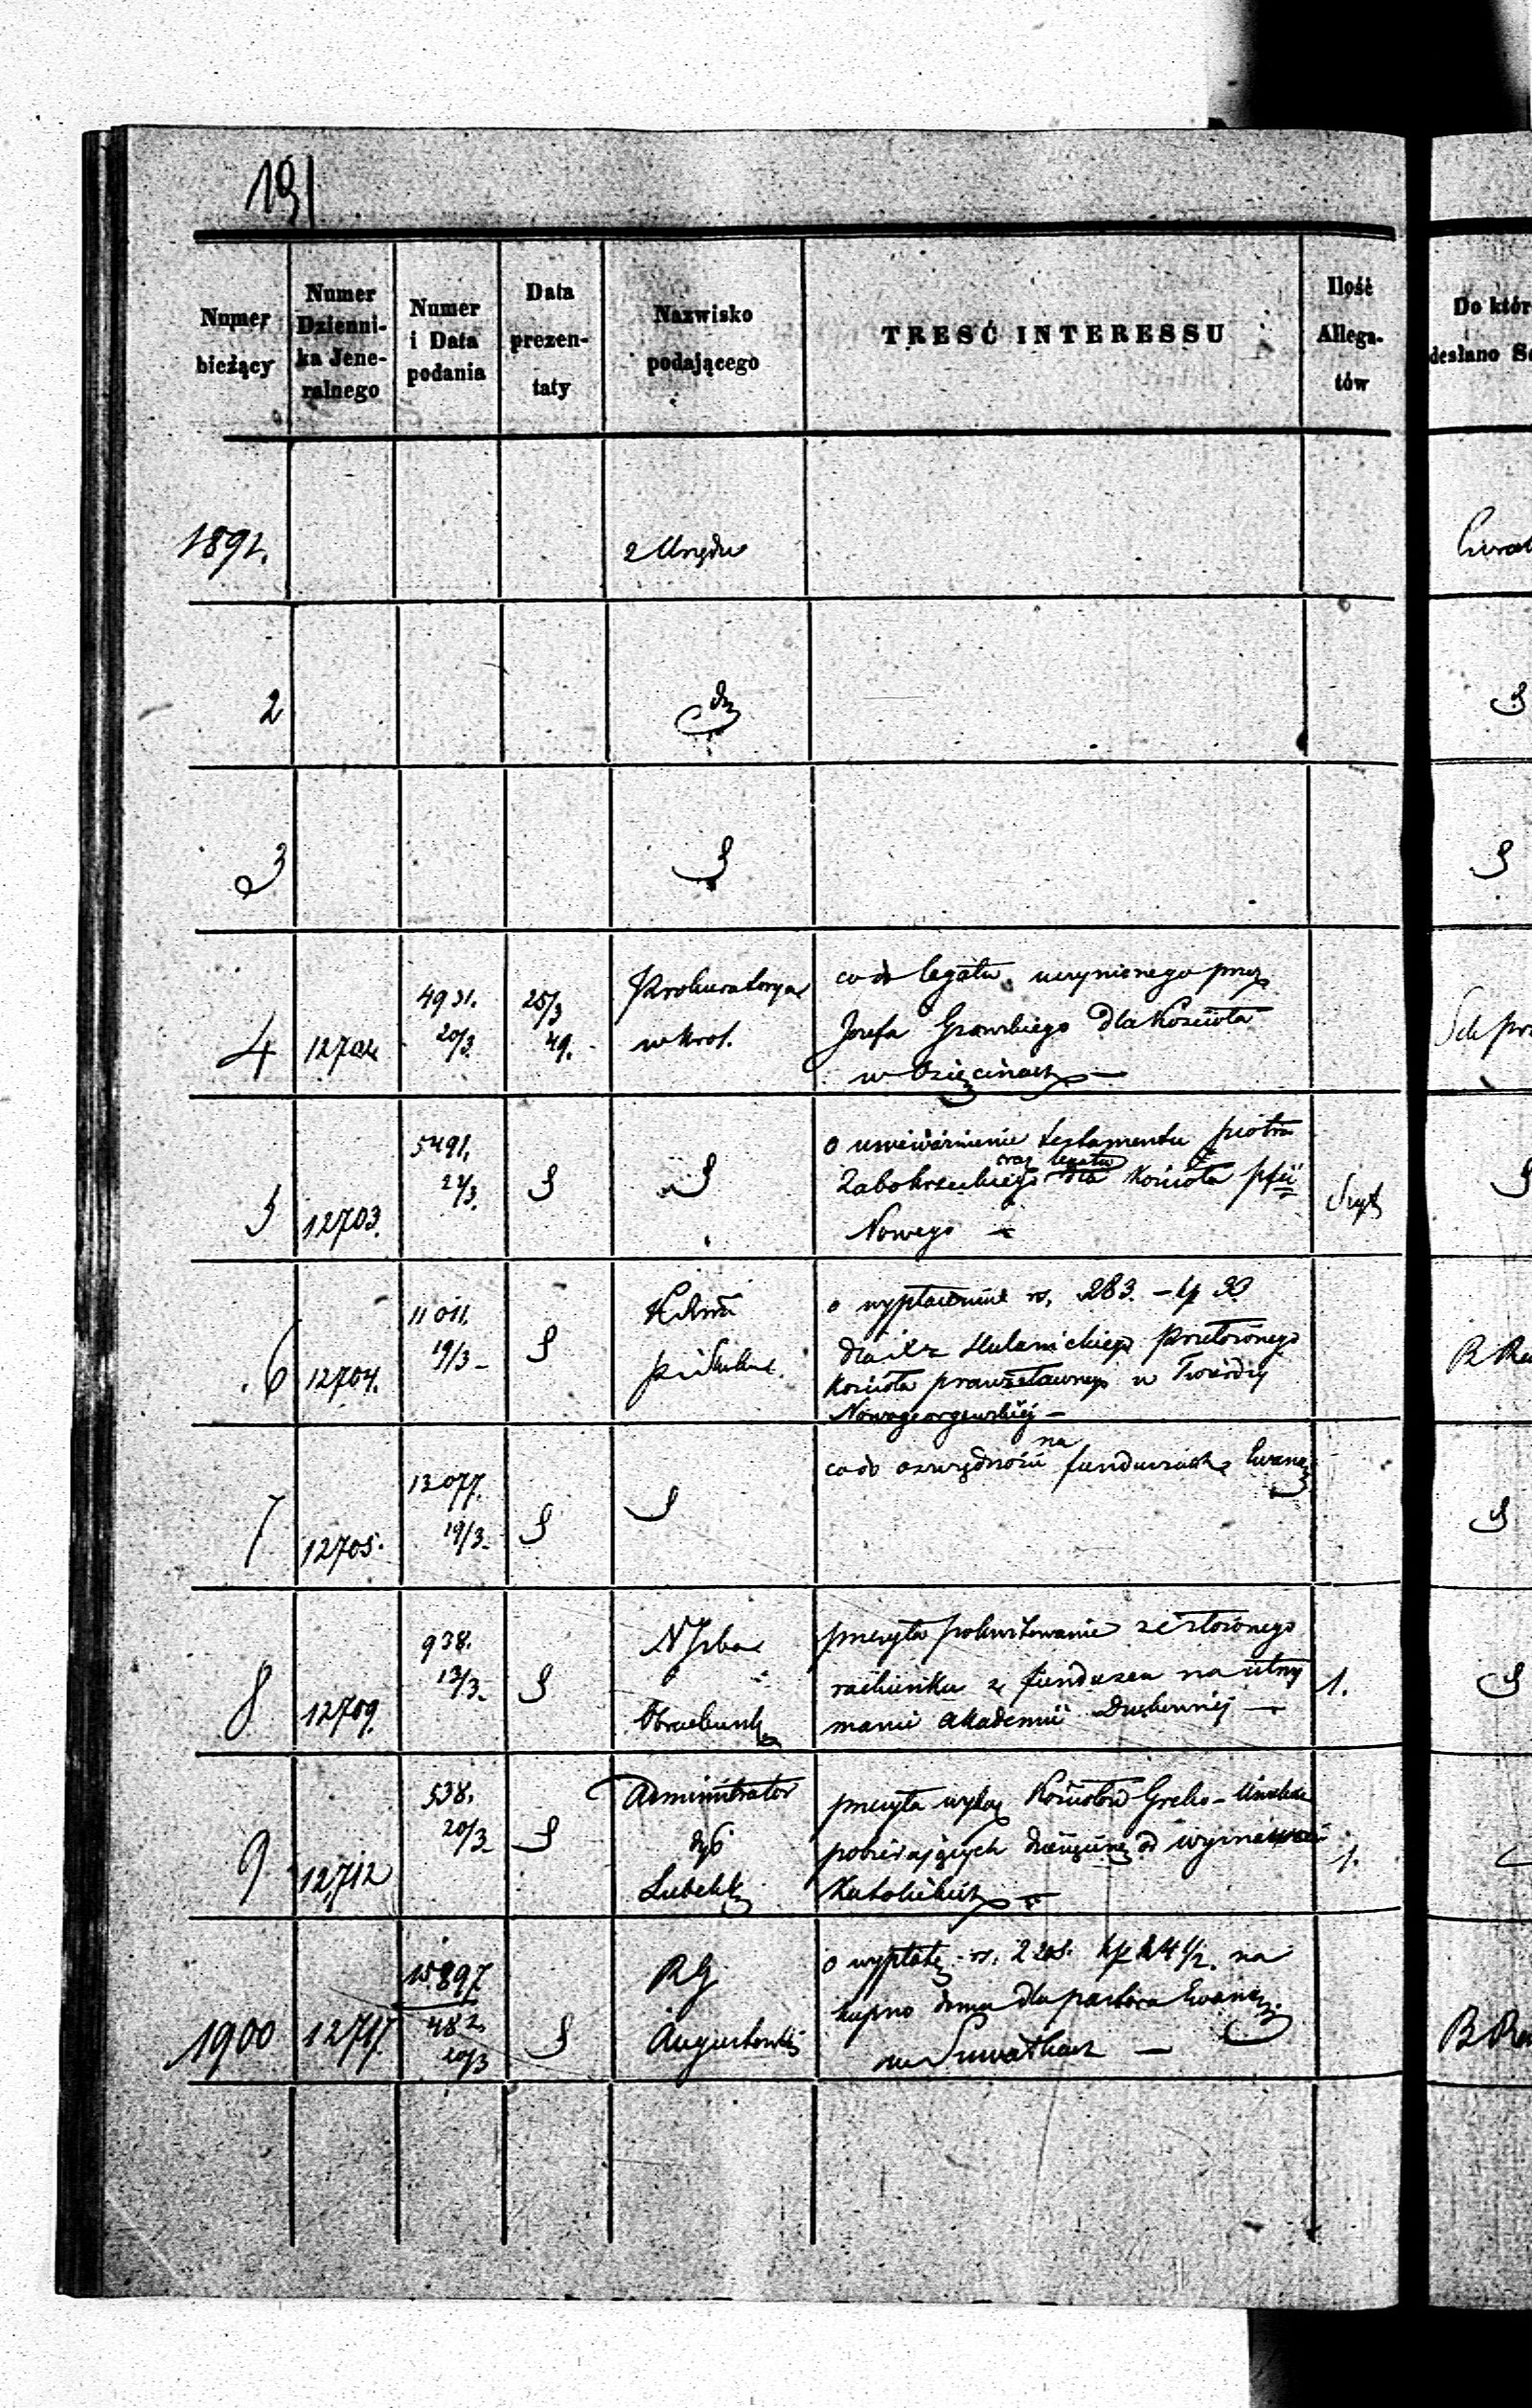 191
Numer bieżący
Numer Dzienni-ka Jene-ralnego
Numer i Data podania
Data prezen-taty
Nazwisko podającego
TRESĆ INTERESSU
Ilość Allega-tów
Do któr
desłano
1891.
z Urzędu
2
3
4 12702 4931. 20/3 25/3 49.
Prokuratorya
w Krol.
co do legatu uczynionego przez
Jozefa Grawskiego dla Kościoła
w Osięcinach —
5 12703. 5491. 21/3.
o unieważnienie testamentu piotra
oraz legatu
Zabokrzeckiego dla Kościoła pfii
Nowego —
6 12704. 11011. 19/3 -
o wypłacenie rs. 283. - kp 30
dla Xa Hulanickiego Przełożonego
Kościoła prawosławnego w Twierdzy
Nowogeorgewskiej —
7 12705. 13077. 19/3 -
na
co do oszczędności funduszach Ewang
8 12709. 938. 13/3 -
N Izba
Obrachunk
przesyła pokwitowanie ze złożonego
rachunku z funduszu na utrzy
manie Akademii Duchownej —
1.
9 12712 538. 20/3
Administrator
dyć
Lubelsk
przesyła wykaz Kościołów Greko - Unickich
pobierających dziesięcinę od wyznawców
Katolickich —
1.
1900 12717. 15897 482 20/3
RG
Augustowski
o wypłatę rs. 2205. kp 24 1/2. na
kupno domu dla pastora Ewang.
w Suwałkach —